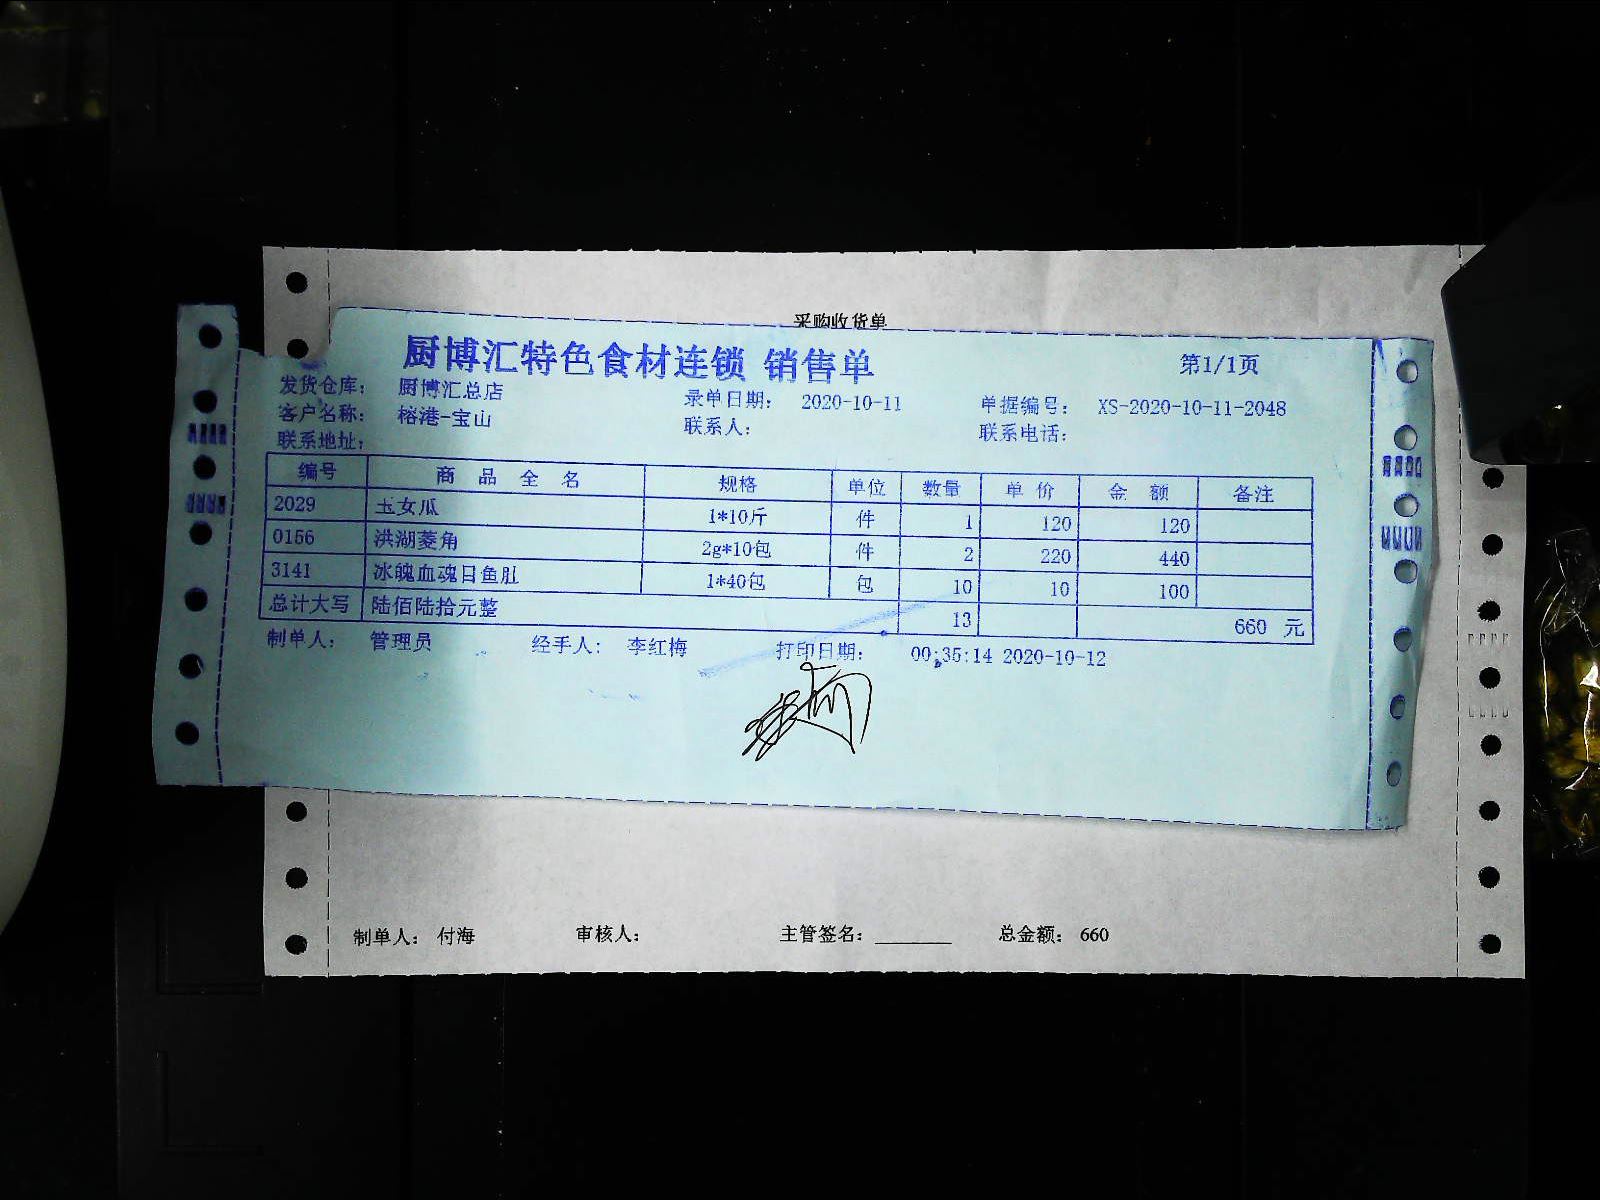 采购收货单
厨博汇特色食材连锁 销售单 第1/1页
发货仓库： 厨博汇总店 录单日期： 2020-10-11 单据编号： XS-2020-10-11-2048
客户名称： 榕港-宝山 联系人： 联系电话：
联系地址：
编号 商品全名 规格 单位 数量 单价 金额 备注
2029 玉女瓜 1*10斤 件 1 120 120
0156 洪湖菱角 2g*10包 件 2 220 440
3141 冰魄血魂目鱼肚 1*40包 包 10 10 100
总计大写 陆佰陆拾元整 13 660 元
制单人： 管理员 经手人： 李红梅 打印日期： 00:35:14 2020-10-12
制单人： 付海 审核人： 主管签名：________ 总金额： 660